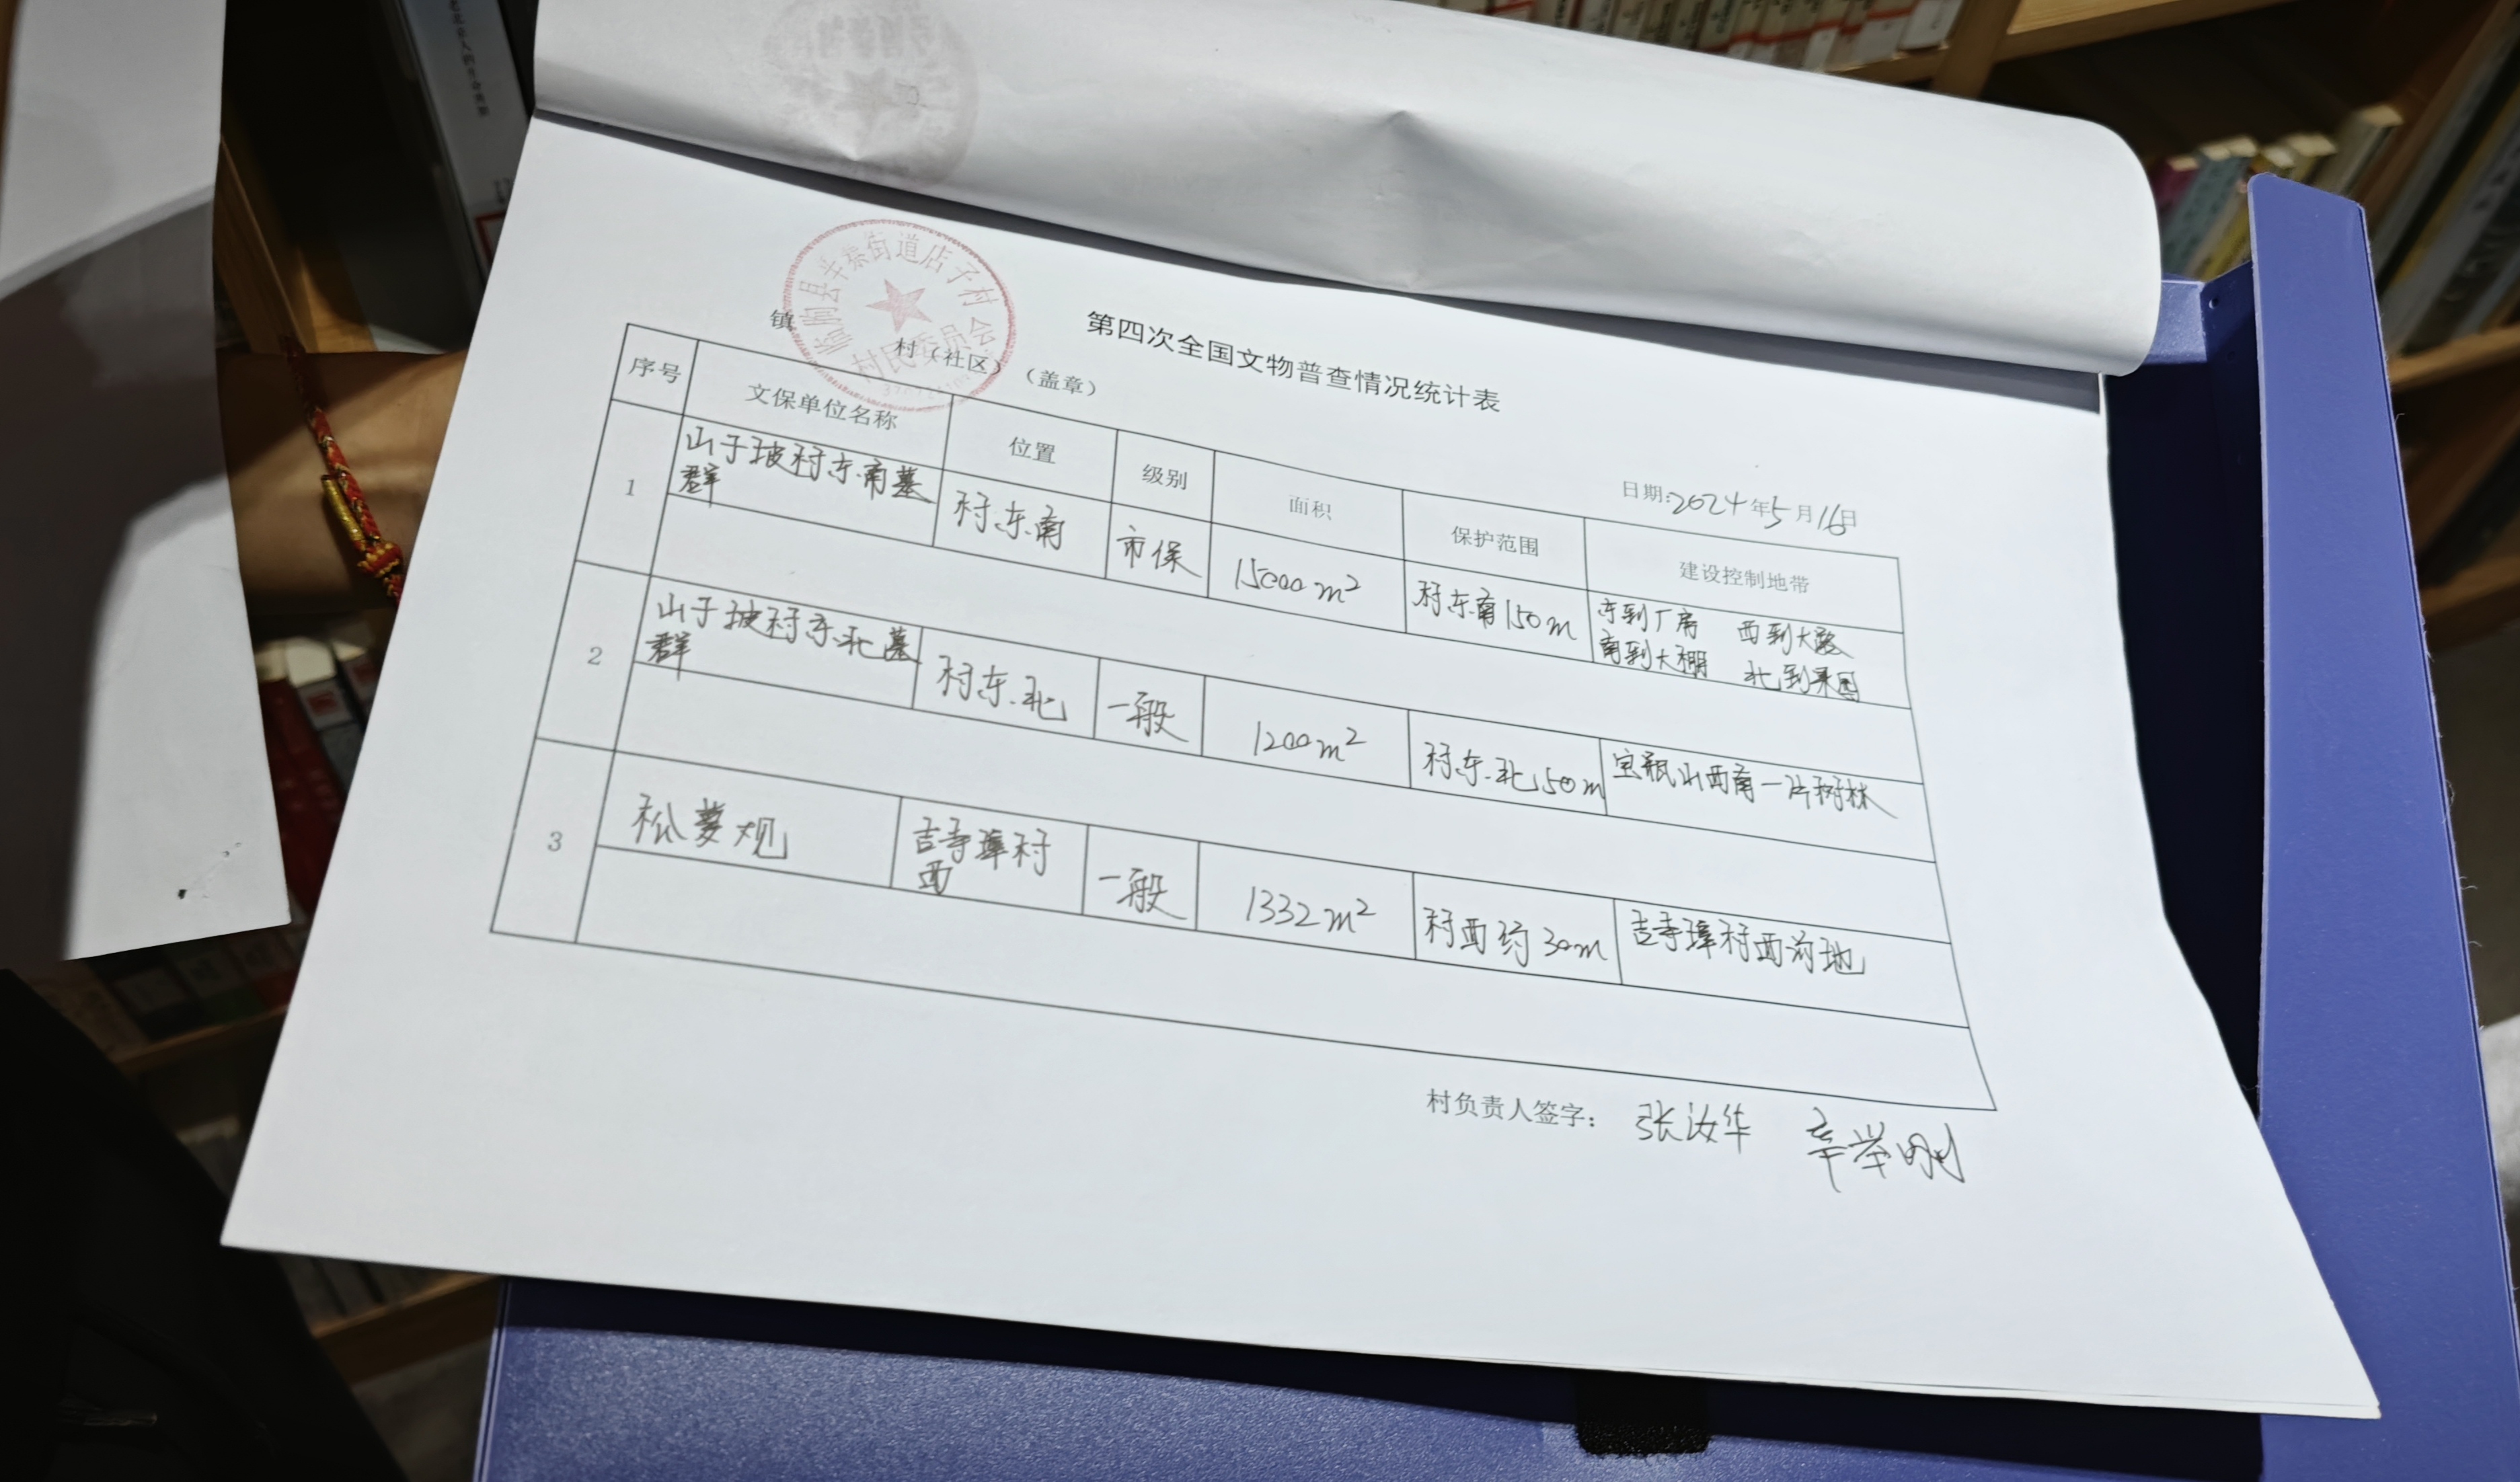 临朐县辛寨街道店子村
村民委员会
第四次全国文物普查情况统计表
镇 村（社区）（盖章）
日期:2024年5月16日
序号 文保单位名称 位置 级别 面积 保护范围 建设控制地带
1 山于坡村东南墓群 村东南 市保 15000m² 村东南150m 东到厂房 西到大路
南到大棚 北到果园
2 山于坡村东北墓群 村东北 一般 1200m² 村东北50m 宝瓶山西南一片树林
3 松萝观 吉寺埠村西 一般 1332m² 村西约30m 吉寺埠村西沟地
村负责人签字： 张汝华 辛举刚